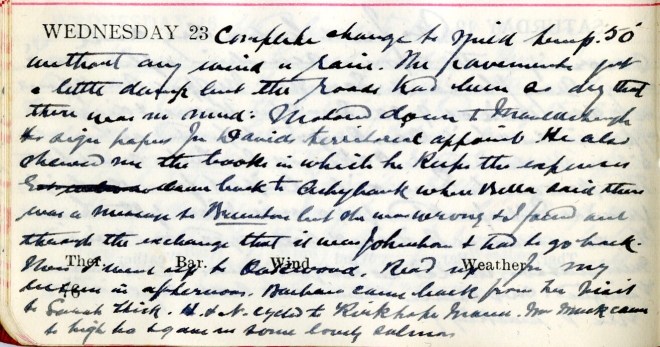 WEDNESDAY 23 Complete change to mild temp. 50
without any wind or rain. The pavements got
a little damp but the roads had been so dry that
there was no mud: Motored down to
to sign papers for Davids territorial appoint. He also
shewed me the books in which he keeps the expenses
came back to Ashybank where Bella said there
was a message to but she was wrong & I found out
through the exchange that it was Johnshaw & had to go back.
Ther. Bar. Wind Weather
Then I went up to Oakwood. Read up for my
in afternoon. Barbara came back from her visit
to Sarah Thick. H. & N. cycled to Kirkhope Manse. Mr Mack came
to high tea & gave us some lovely salmon